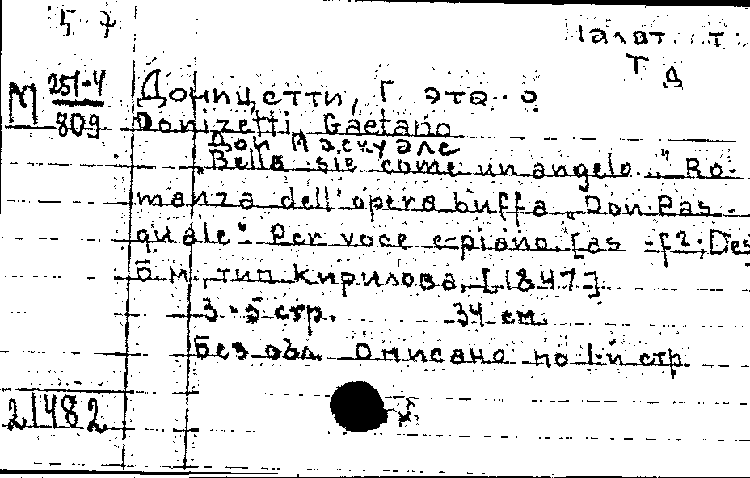 5 7
M 251-4
809
Доницетти, Гаэтано
Donizetti, Gaetano
Дон Паскуале
"Bella sie come un angelo..." Ro-
manza dell'opera buffa "Don Pas-
quale". Per voce e piano. [as - f²; Des
Б.м., тип Кирилова, [1847].
3-5 стр. 34 см.
Без обл. Описано по 1-й стр.
21482